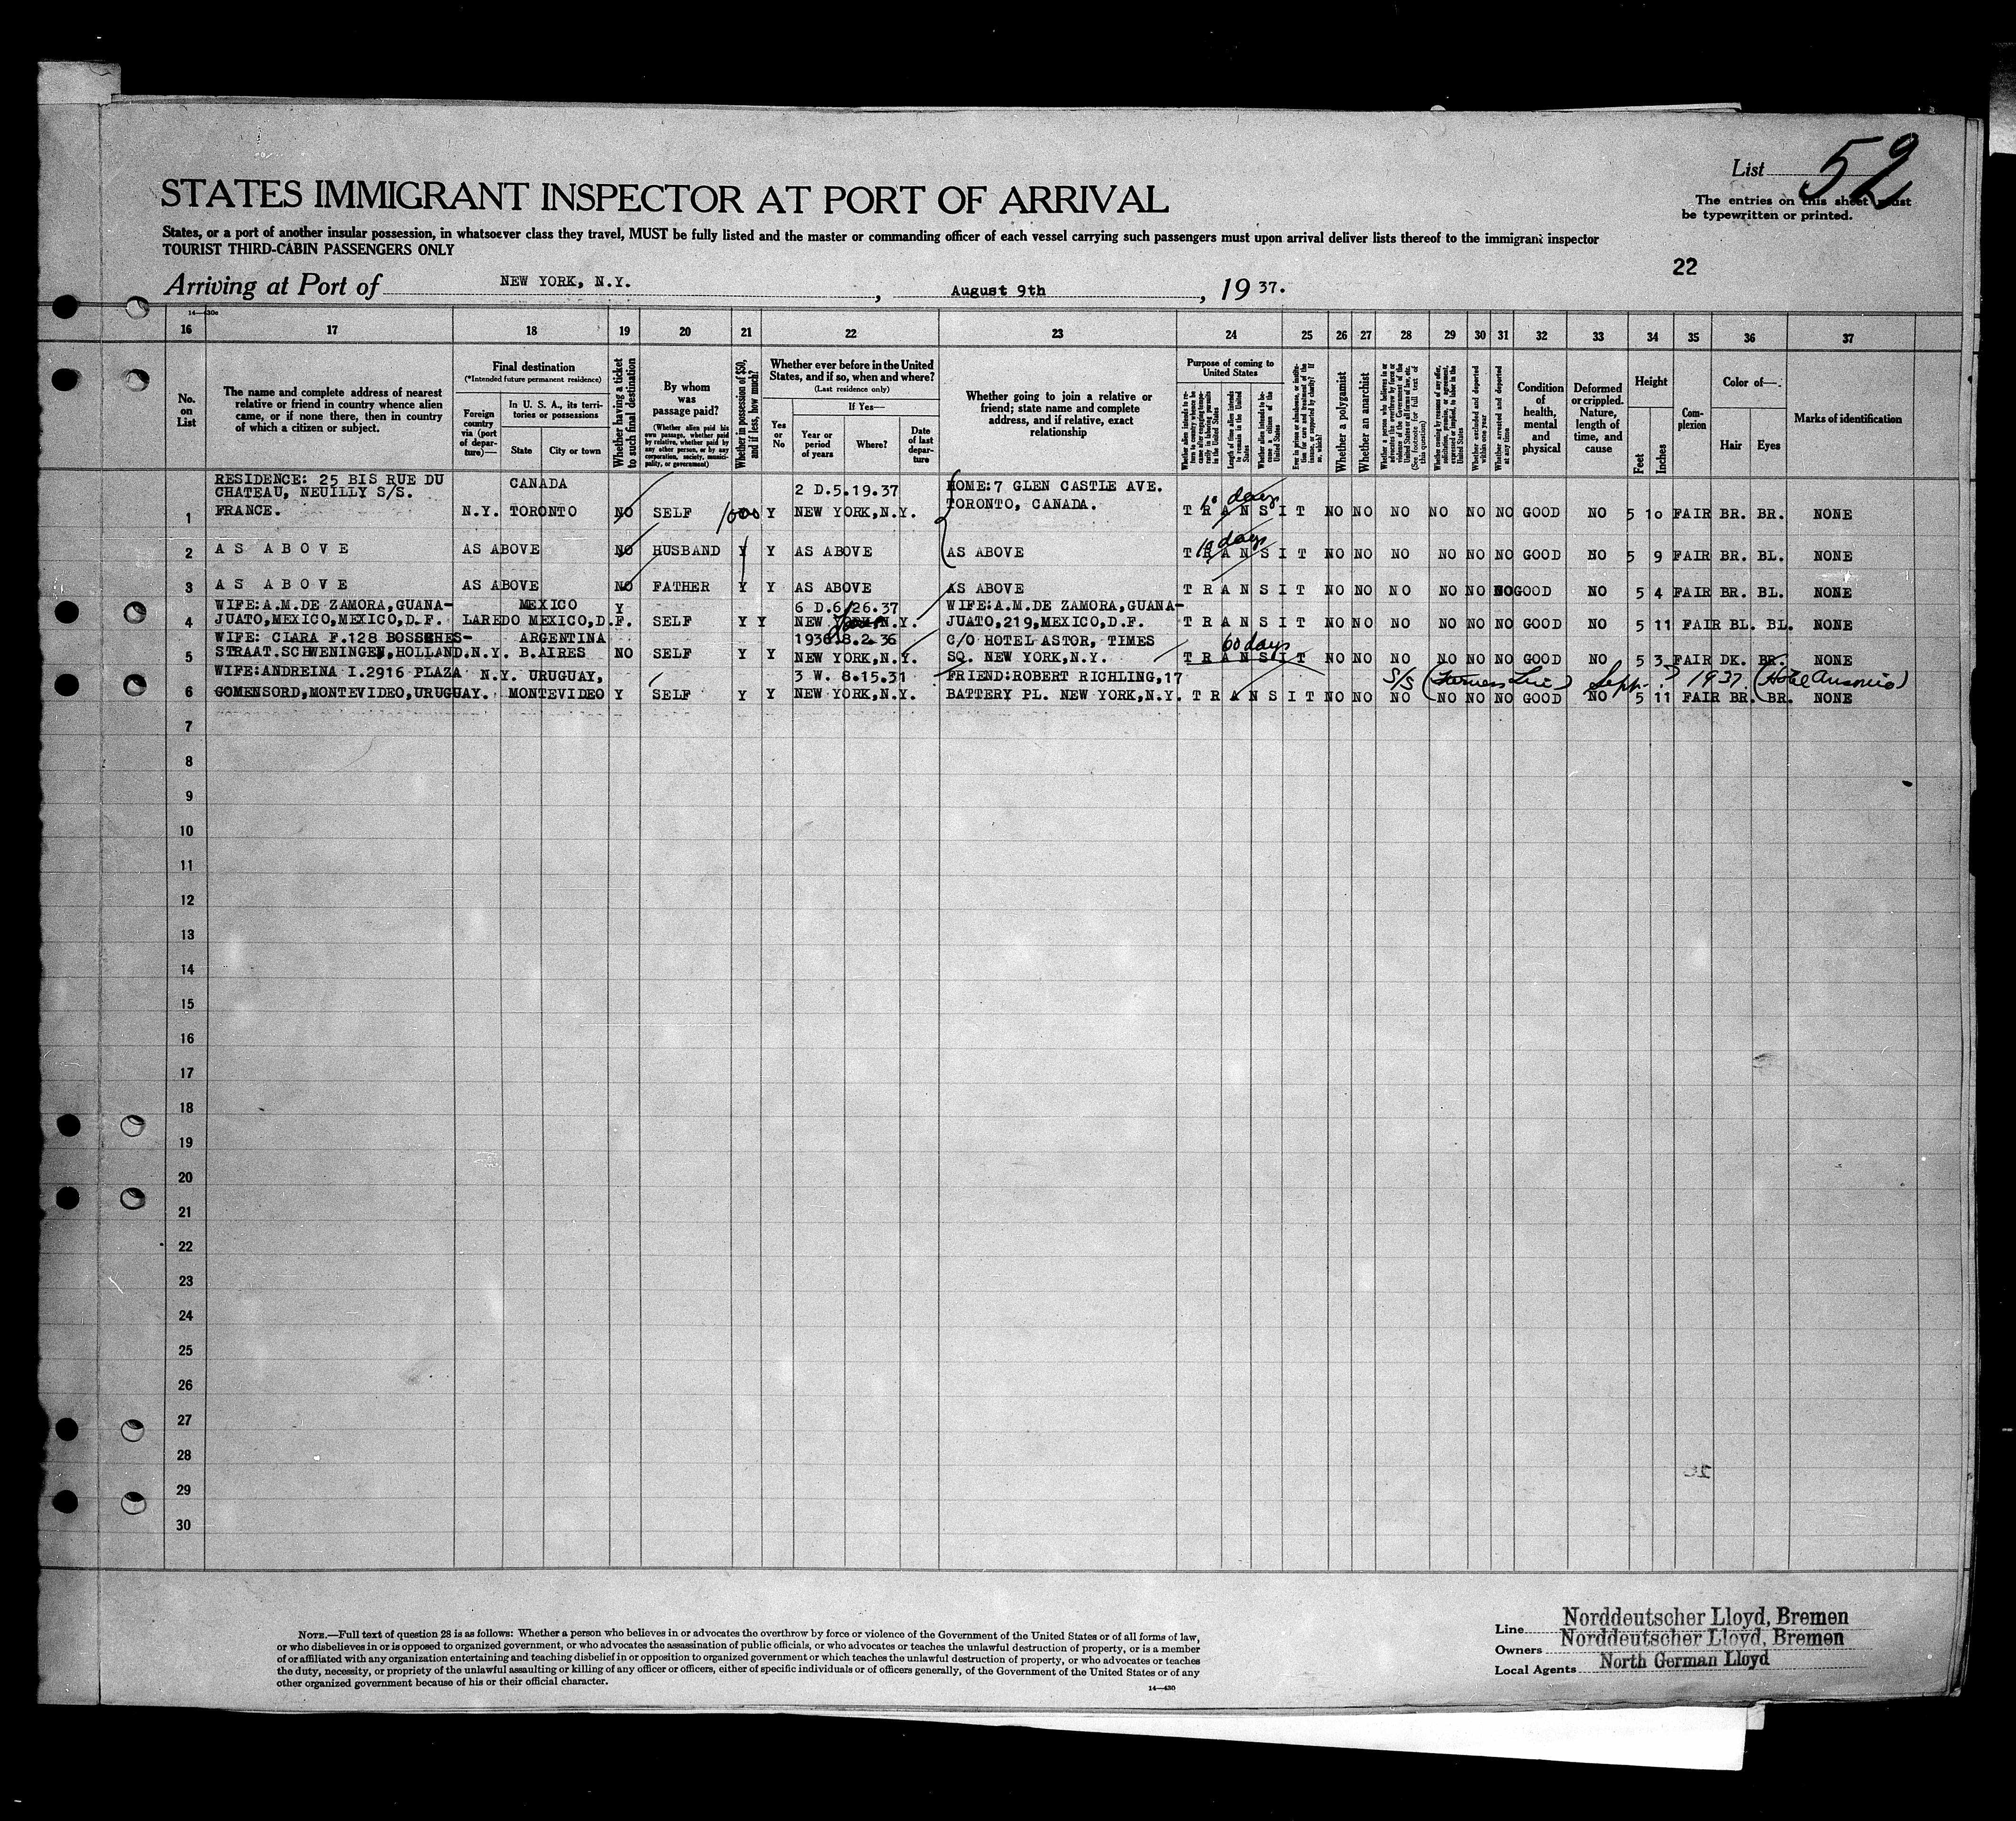 List 52
STATES IMMIGRANT INSPECTOR AT PORT OF ARRIVAL
The entries on this sheet must
be typewritten or printed.
States, or a port of another insular possession, in whatsoever class they travel, MUST be fully listed and the master or commanding officer of each vessel carrying such passengers must upon arrival deliver lists thereof to the immigrant inspector
TOURIST THIRD-CABIN PASSENGERS ONLY
22
Arriving at Port of NEW YORK, N.Y. , August 9th , 19 37.
16 17 18 19 20 21 22 23 24 25 26 27 28 29 30 31 32 33 34 35 36 37
No. on List
The name and complete address of nearest
relative or friend in country whence alien
came, or if none there, then in country
of which a citizen or subject.
Final destination
(*Intended future permanent residence)
Foreign country via (port of departure)—
In U. S. A., its territories or possessions
State City or town
Whether having a ticket to such final destination
By whom was passage paid?
(Whether alien paid his own passage, whether paid by relative, whether paid by any other person, or by any corporation, society, municipality, or government)
Whether in possession of $50, and if less, how much?
Whether ever before in the United States, and if so, when and where?
(Last residence only)
Yes or No
If Yes—
Year or period of years
Where?
Date of last departure
Whether going to join a relative or
friend; state name and complete
address, and if relative, exact
relationship
Purpose of coming to United States
Whether a polygamist
Whether an anarchist
(See footnote for full text of this question)
Whether excluded and deported within one year
Whether arrested and deported at any time
Condition of health, mental and physical
Deformed or crippled. Nature, length of time, and cause
Height
Feet Inches
Complexion
Color of—
Hair Eyes
Marks of identification
RESIDENCE: 25 BIS RUE DU CANADA 2 D.5.19.37 HOME:7 GLEN CASTLE AVE.
CHATEAU, NEUILLY S/S. TORONTO, CANADA. 10 days
1 FRANCE. N.Y. TORONTO NO SELF 1000 Y NEW YORK,N.Y. TRANSIT NO NO NO NO NO NO GOOD NO 5 10 FAIR BR. BR. NONE
10 days
2 AS ABOVE AS ABOVE NO HUSBAND Y Y AS ABOVE AS ABOVE TRANSIT NO NO NO NO NO NO GOOD NO 5 9 FAIR BR. BL. NONE
3 AS ABOVE AS ABOVE NO FATHER Y Y AS ABOVE AS ABOVE TRANSIT NO NO NO NO NO NO GOOD NO 5 4 FAIR BR. BL. NONE
WIFE:A.M.DE ZAMORA,GUANA- MEXICO Y 6 D.6/26.37 WIFE:A.M.DE ZAMORA,GUANA-
4 JUATO,MEXICO,MEXICO,D.F. LAREDO MEXICO,D.F. SELF Y Y NEW YORK N.Y. JUATO,219,MEXICO,D.F. TRANSIT NO NO NO NO NO NO GOOD NO 5 11 FAIR BL. BL. NONE
WIFE: CLARA F.128 ARGENTINA 1936 8.2.36 C/O HOTEL ASTOR, TIMES 60 days
5 STRAAT.SCHWENINGEN,HOLLAND.N.Y. B.AIRES NO SELF Y Y NEW YORK,N.Y. SQ. NEW YORK,N.Y. TRANSIT NO NO NO NO NO NO GOOD NO 5 3 FAIR DK. BR. NONE
WIFE:ANDREINA I.2916 PLAZA N.Y. URUGUAY, 3 W. 8.15.31 FRIEND:ROBERT RICHLING,17 S/S (Furness Line) Sept. 1937
6 GOMENSORD,MONTEVIDEO,URUGUAY. MONTEVIDEO Y SELF Y Y NEW YORK,N.Y. BATTERY PL. NEW YORK,N.Y. TRANSIT NO NO NO NO NO NO GOOD NO 5 11 FAIR BR. BR. NONE
7
8
9
10
11
12
13
14
15
16
17
18
19
20
21
22
23
24
25
26
27
28
29
30
NOTE.—Full text of question 28 is as follows: Whether a person who believes in or advocates the overthrow by force or violence of the Government of the United States or of all forms of law,
or who disbelieves in or is opposed to organized government, or who advocates the assassination of public officials, or who advocates or teaches the unlawful destruction of property, or is a member
of or affiliated with any organization entertaining and teaching disbelief in or opposition to organized government or which teaches the unlawful destruction of property, or who advocates or teaches
the duty, necessity, or propriety of the unlawful assaulting or killing of any officer or officers, either of specific individuals or of officers generally, of the Government of the United States or of any
other organized government because of his or their official character.
14—430
Line Norddeutscher Lloyd, Bremen
Owners Norddeutscher Lloyd, Bremen
Local Agents North German Lloyd